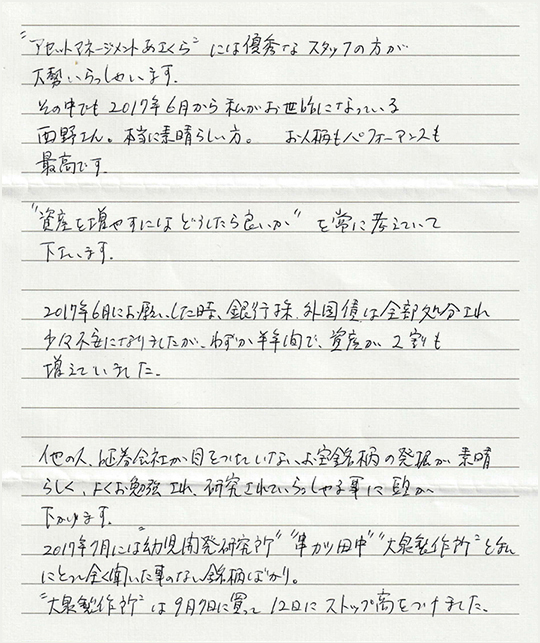 "アセットマネージメントあさくら"には優秀なスタッフの方が
大勢いらっしゃいます。
その中でも2017年6月から私がお世話になっている
西野さん。本当に素晴らしい方。 お人柄もパフォーマンスも
最高です。
"資産を増やすにはどうしたら良いか"を常に考えていて
下さいます。
2017年6月にお願いした時、銀行株、外国債は全部処分され
少々不安になりましたが、わずか半年間で、資産が2割も
増えていました。
他の人、証券会社が目をつけていない、お宝銘柄の発掘が素晴
らしく、よくお勉強され、研究されていらっしゃる事に頭が
下がります。
2017年7月には"幼児開発研究所""串カツ田中""大泉製作所"と私
にとって全く聞いた事のない銘柄ばかり。
"大泉製作所"は9月7日に買って12日にストップ高をつけました。